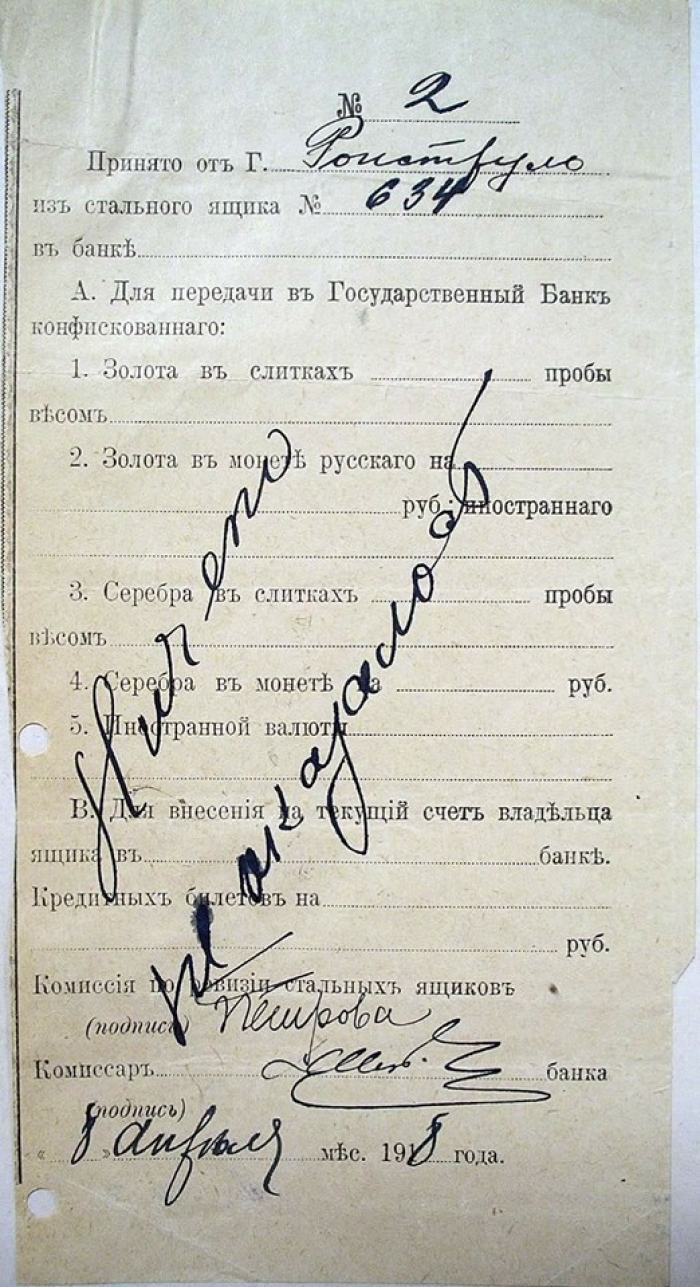 № 2
Принято отъ Г.
изъ стального ящика № 634
въ банкѣ
А. Для передачи въ Государственный Банкъ
конфискованнаго:
1. Золота въ слиткахъ пробы
вѣсомъ
2. Золота въ монетѣ русскаго на
руб.; иностраннаго
3. Серебра въ слиткахъ пробы
вѣсомъ
4. Серебра въ монетѣ на руб.
5. Иностранной валюты
В. Для внесенія на текущій счетъ владѣльца
ящика въ банкѣ.
Кредитныхъ билетовъ на
руб.
Ничего
не оказалось
Комиссія по ревизіи стальныхъ ящиковъ
(подпись) Петрова
Комиссаръ банка
(подпись)
« 8 » апрѣля мѣс. 1918 года.